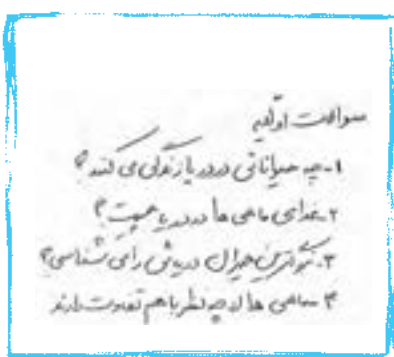 سوالات اولیه
۱- چه حیواناتی در دریا زندگی می کنند؟
۲. غذای ماهی ها در دریا چیست؟
۳. بزرگترین حیوان دریائی را می شناسی؟
۴ ماهی ها از چه نظر با هم تفاوت دارند